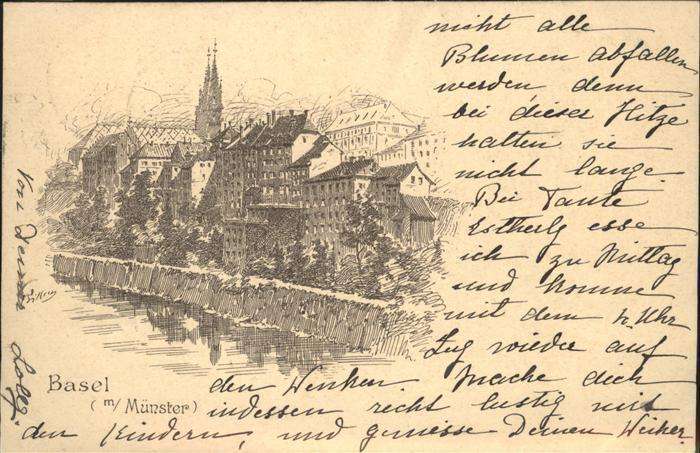 nicht alle
Blumen abfallen
werden, denn
bei dieser Hitze
halten sie
nicht lange.
Bei Tante
esse
ich zu Mittag
und komme
mit dem Uhr
Zug wieder auf
den Mache dich
indessen recht lustig mit
den Kindern, und geniesse Deinen
Basel
(m/ Münster)
Von